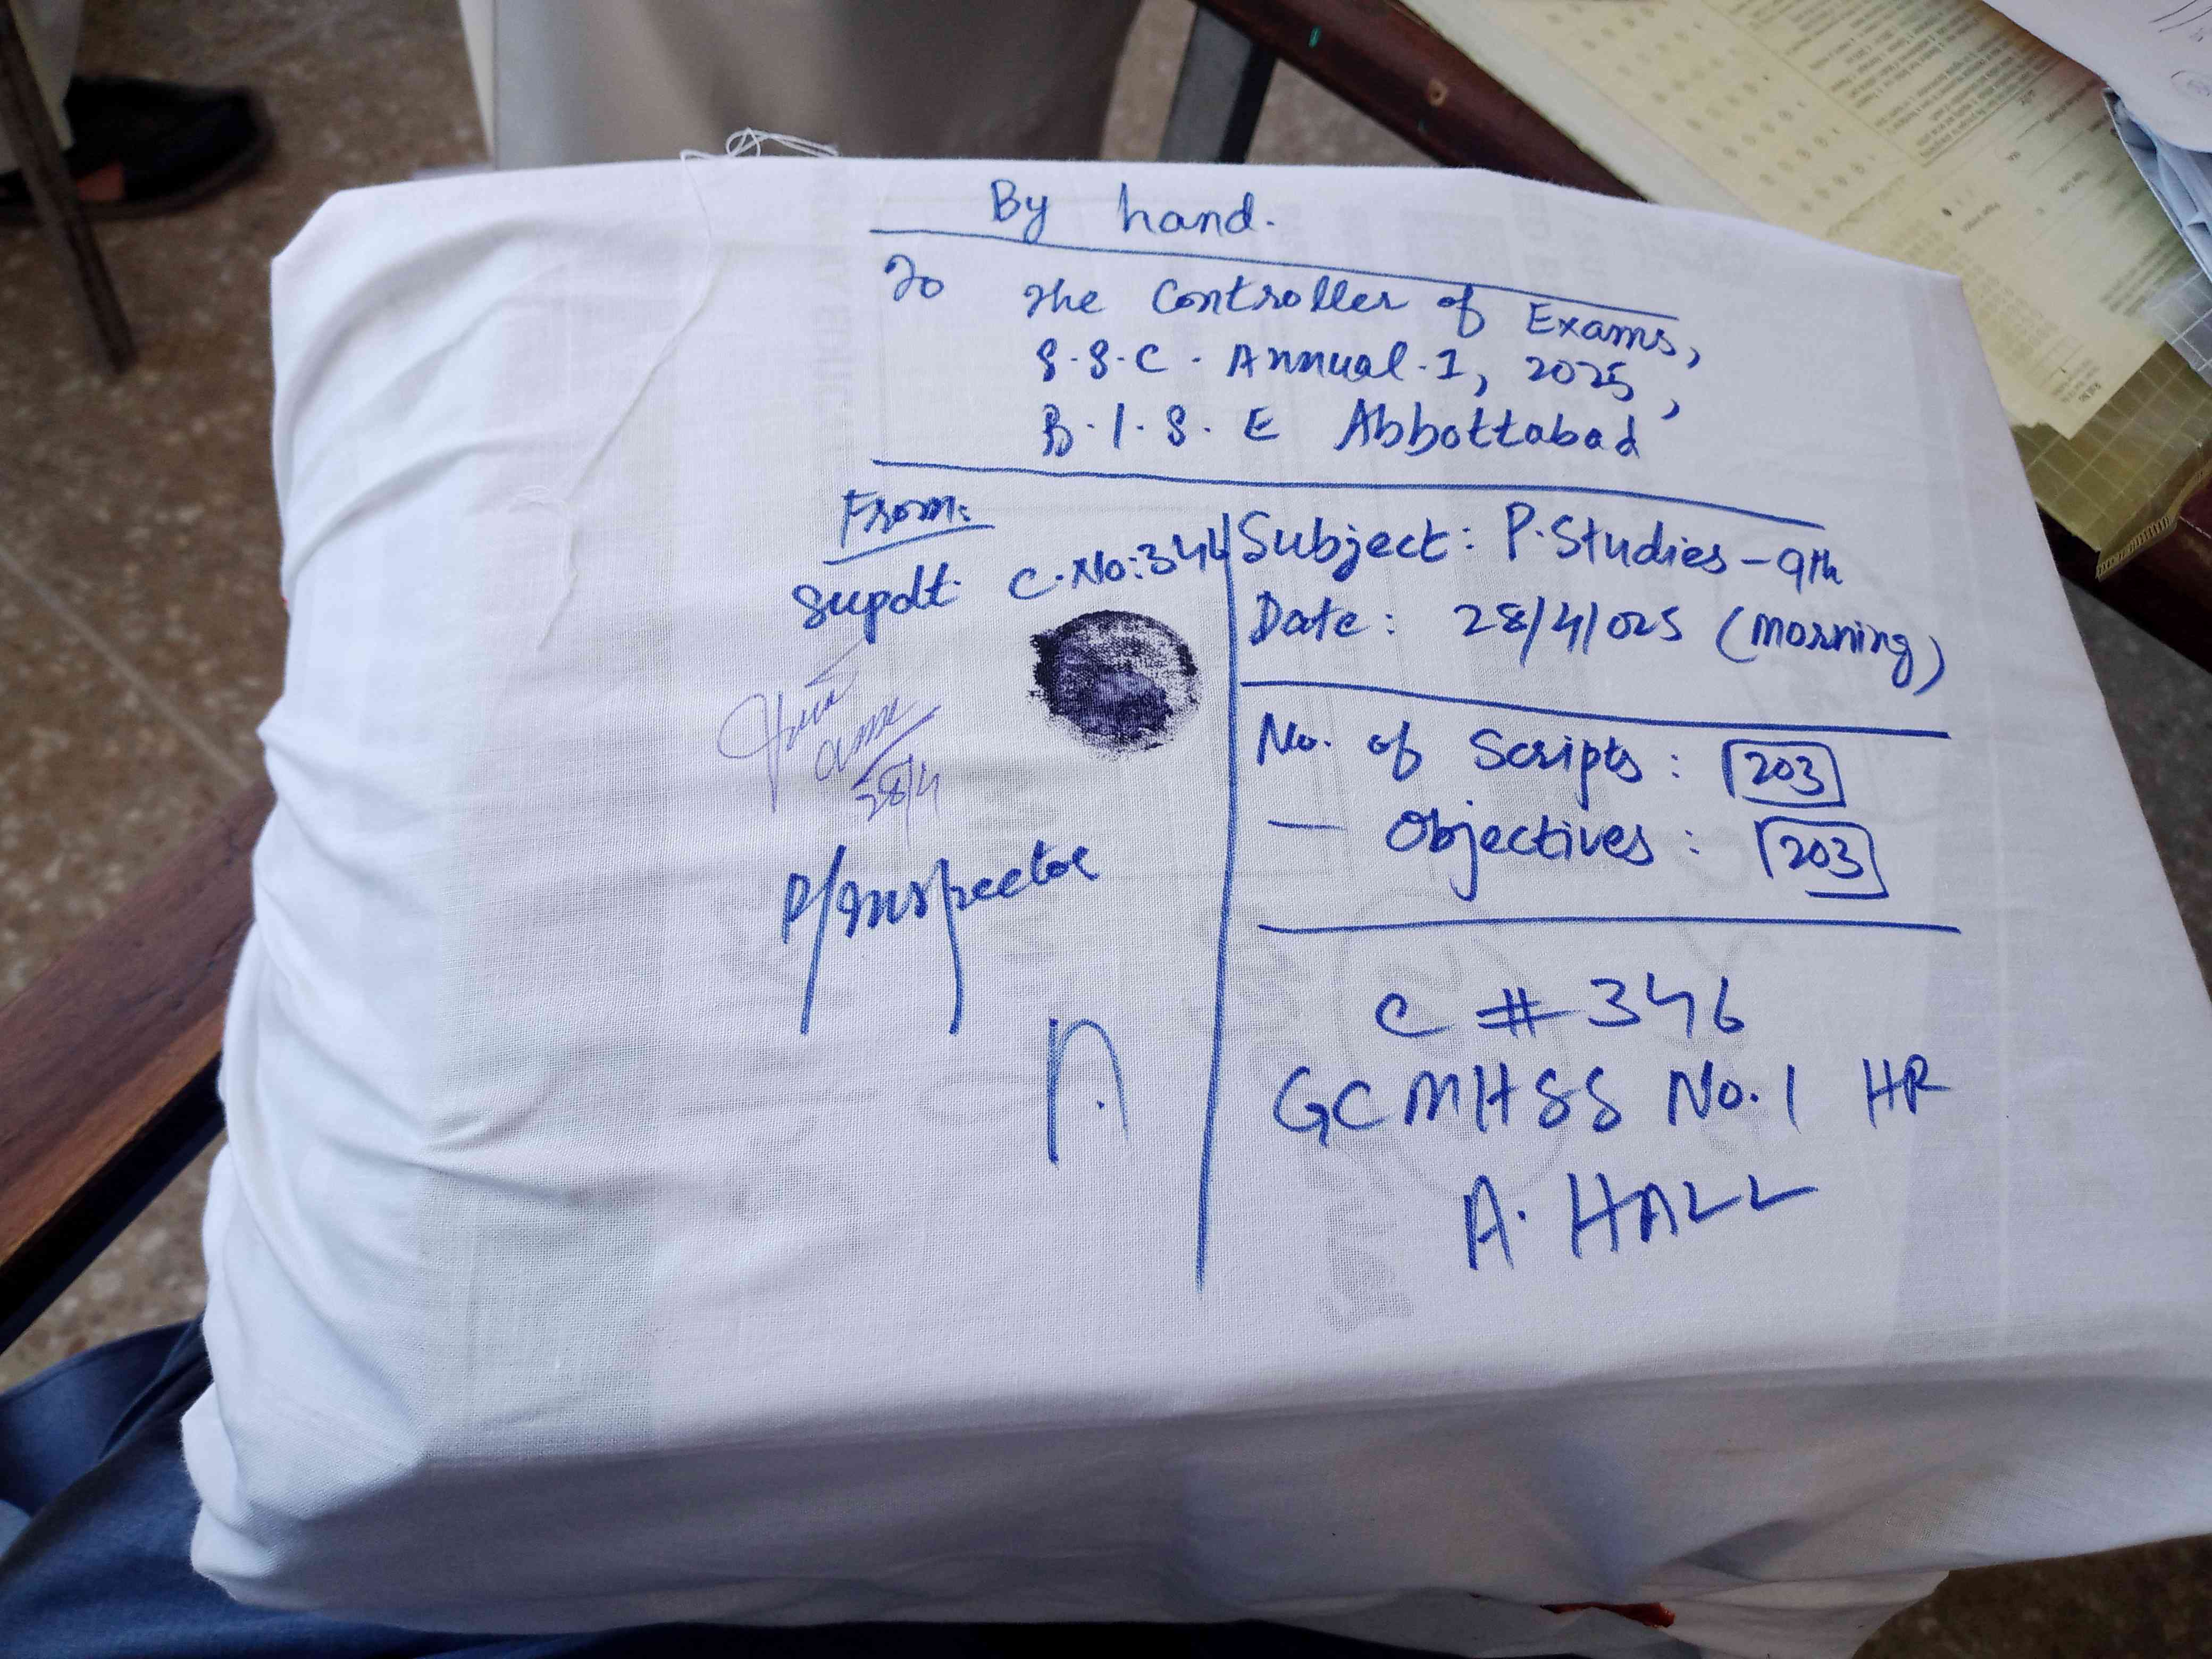 By hand.
To The Controller of Exams,
S.S.C. Annual.I, 2025,
B.I.S.E Abbottabad
From:
Supdt. C.No:344
28/4
P/Inspector
A
Subject: P.Studies-9th
Date: 28/4/025 (Morning)
No. of Scripts: 203
— Objectives: 203
C # 346
GCMHSS No.1 HR
A. HALL